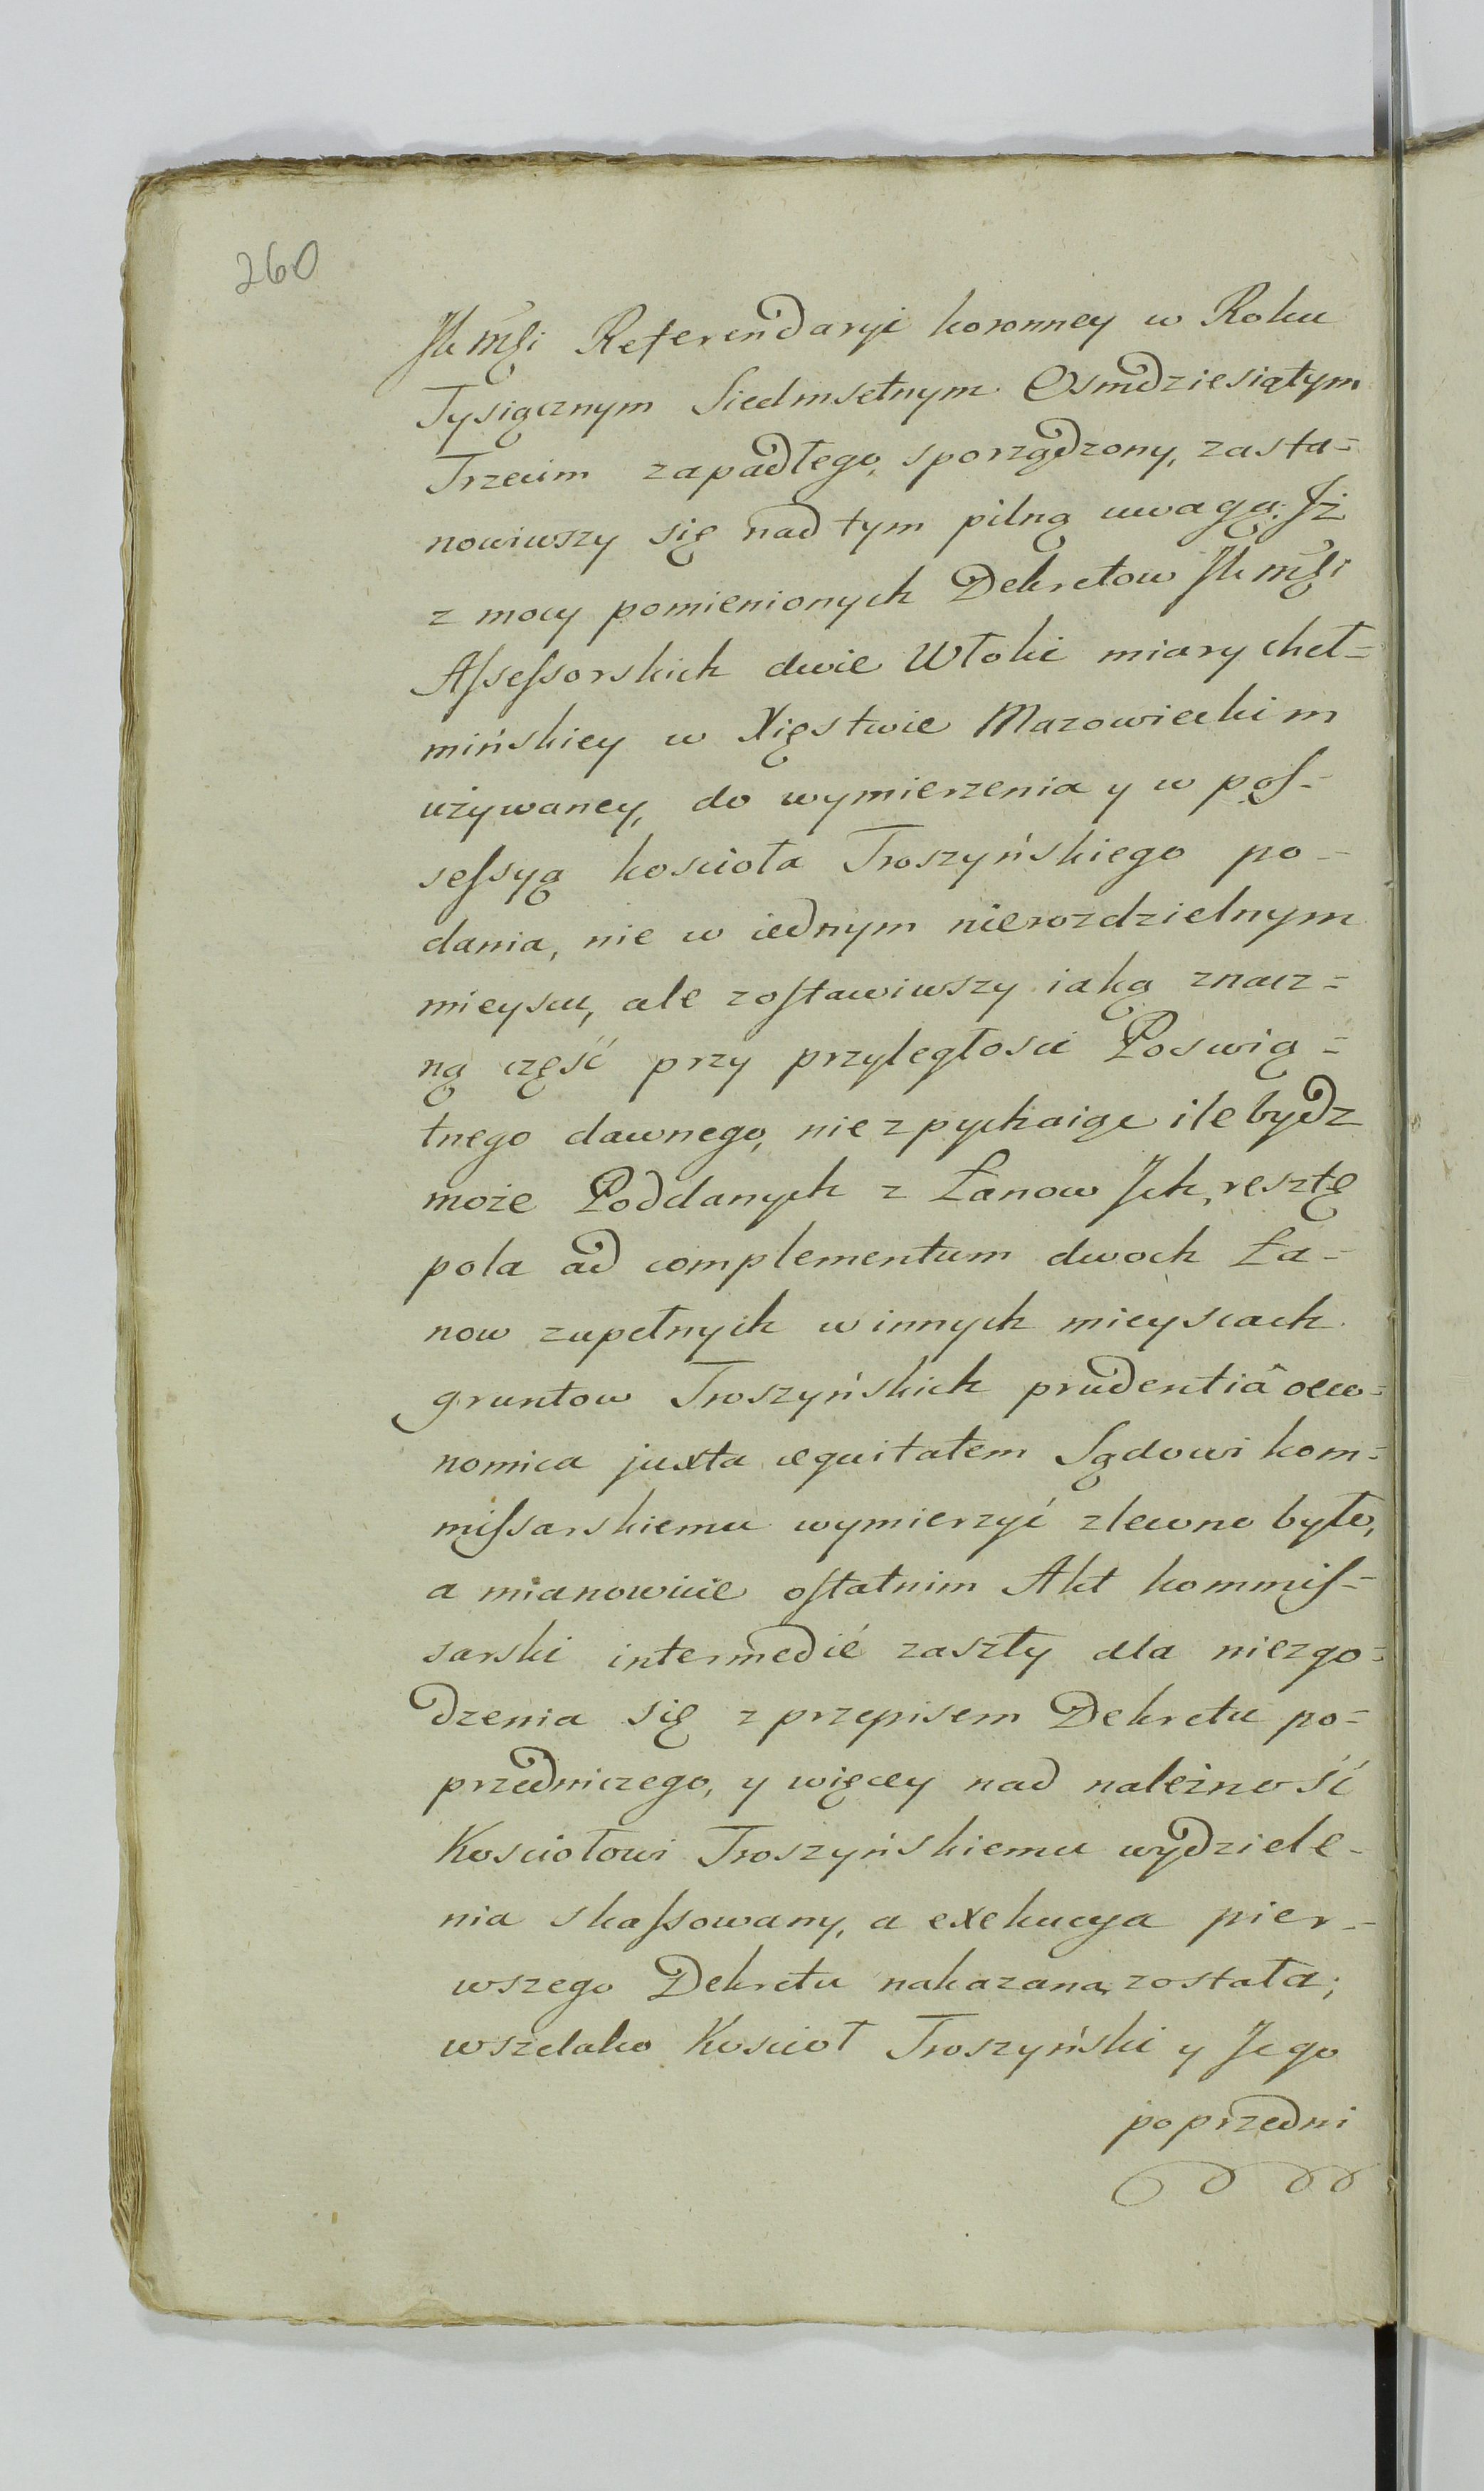 260
JKMśi Referendaryi koronney w Roku
Tysiącznym Siedmsetnym Osmdziesiątym
Trzecim zapadłego, sporządzony, zasta=
nowiwszy się nad tym pilną uwagą. Jż
z mocy pomienionych Dekretow JKMśi
Aſseſsorskich dwie Włoki miary cheł=
mińskiey w Xięstwie Mazowieckim
używaney, do wymierzenia y w poſ=
seſsyą kościoła Troszyńskiego po-
dania, nie w iednym nierozdzielnym
mieyscu, ale zoſtawiwszy iaką znacz=
ną część przy przyległosci Poswią=
tnego dawnego, nie zpychaiąc ile bydz
może Poddanych z Łanow Jch, resztę
pola ad complementum dwoch Ła-
now zupełnych w innych mieyscach
gruntow Troszyńskich prudentiâ oeco=
nomica juxta æquitatem Sądowi kom=
miſsarskiemu wymierzyć zlecono było,
a mianowicie oſtatnim Akt kommiſ=
sarski intermedié zaszły dla niezgo=
dzenia się z przepisem Dekretu po=
przedniczego, y więcey nad należność
Kościołowi Troszyńskiemu wydziele-
nia skaſsowany, a exekucya pier-
wszego Dekretu nakazana została;
wszelako Kościoł Troszyński y Jego
poprzedni